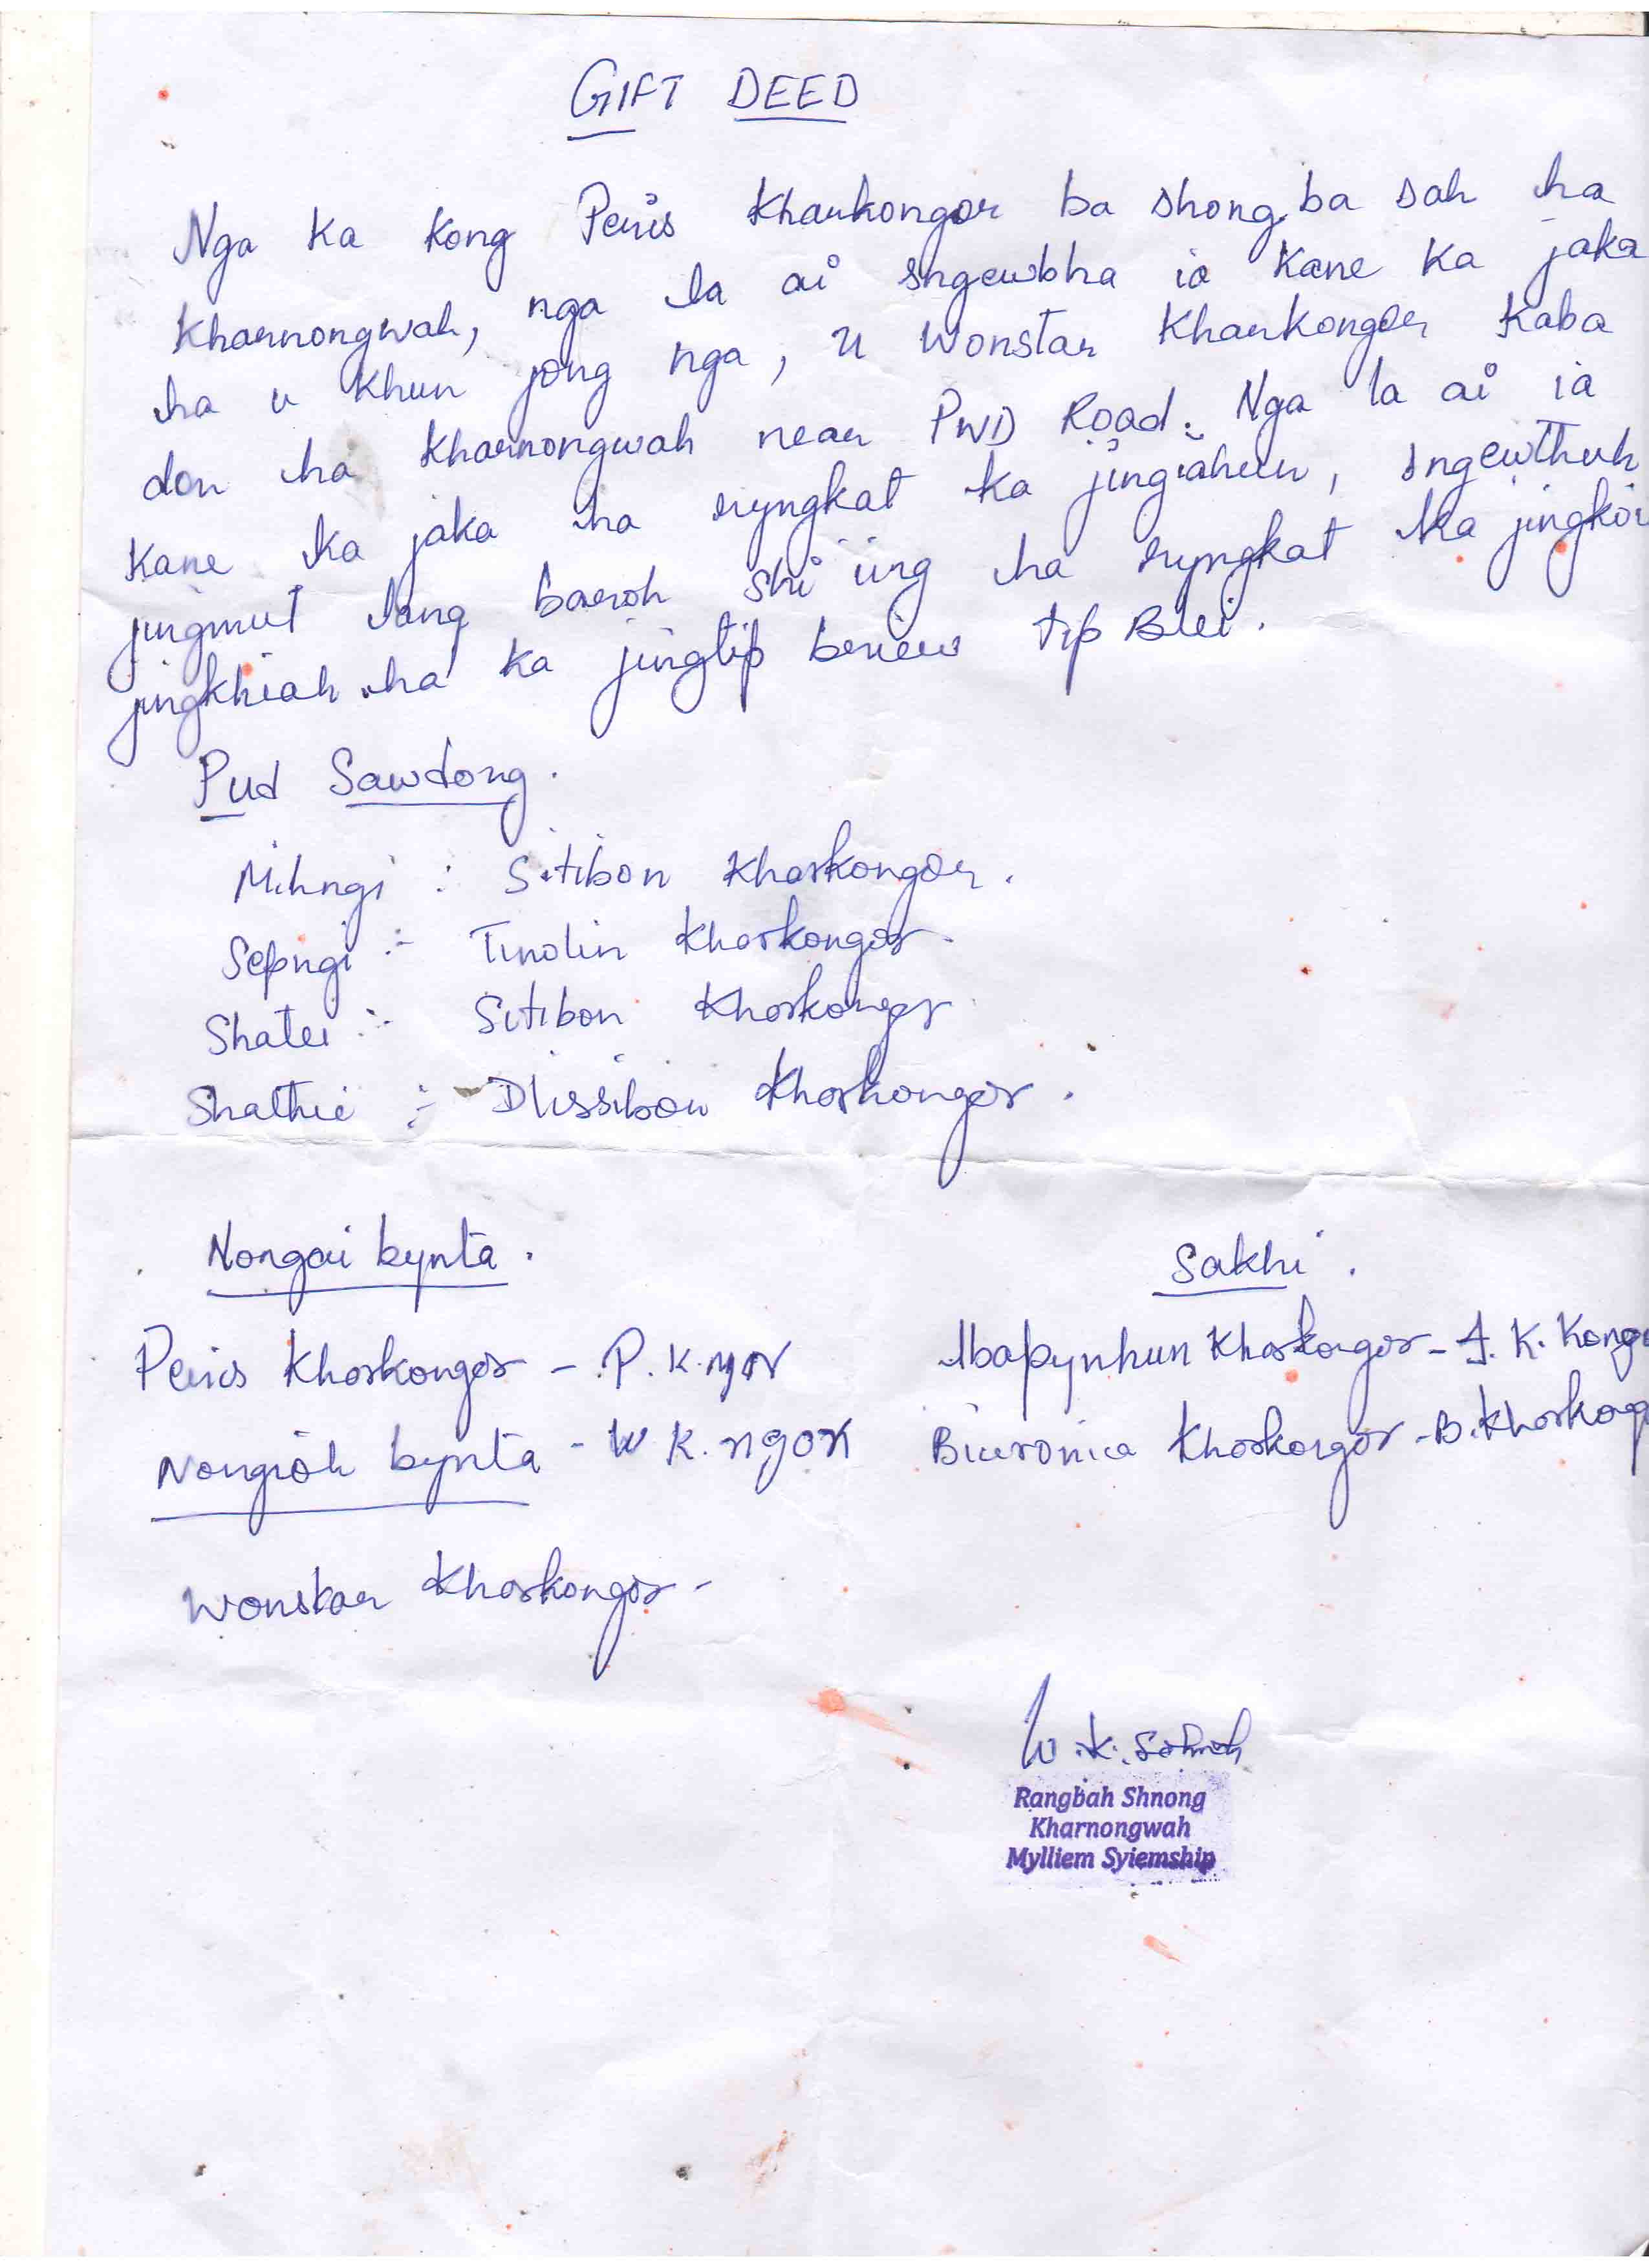 GIFT DEED
Nga ka kong Peris Kharkongor ba shong ba sah ha
Kharnongwah, nga la ai sngewbha ia kane ka jaka
ha u khun jong nga, u Wonstar Kharkongor kaba
don ha Kharnongwah near PWD Road. Nga la ai ia
kane ka jaka ha ryngkat ka jingiahun, sngewthuh
jingmut lang baroh shi iing ha ryngkat ka jingkoi
jingkhiah ha ka jingtip briew tip Blei.
Pud Sawdong.
Mihngi : Sitibon Kharkongor.
Sepngi :- Tinolin Kharkongor.
Shatei :- Sitibon Kharkongor
Shathie :- Dlissibon Kharkongor.
Nongai bynta. Sakhi.
Peris Kharkongor - P.K.ngor Ibapynhun Kharkongor - I.K. Kongo
Nongioh bynta - W K.ngor Biuronica Kharkongor - B.Kharkong
Wonstar Kharkongor -
W.K.
Rangbah Shnong
Kharnongwah
Mylliem Syiemship